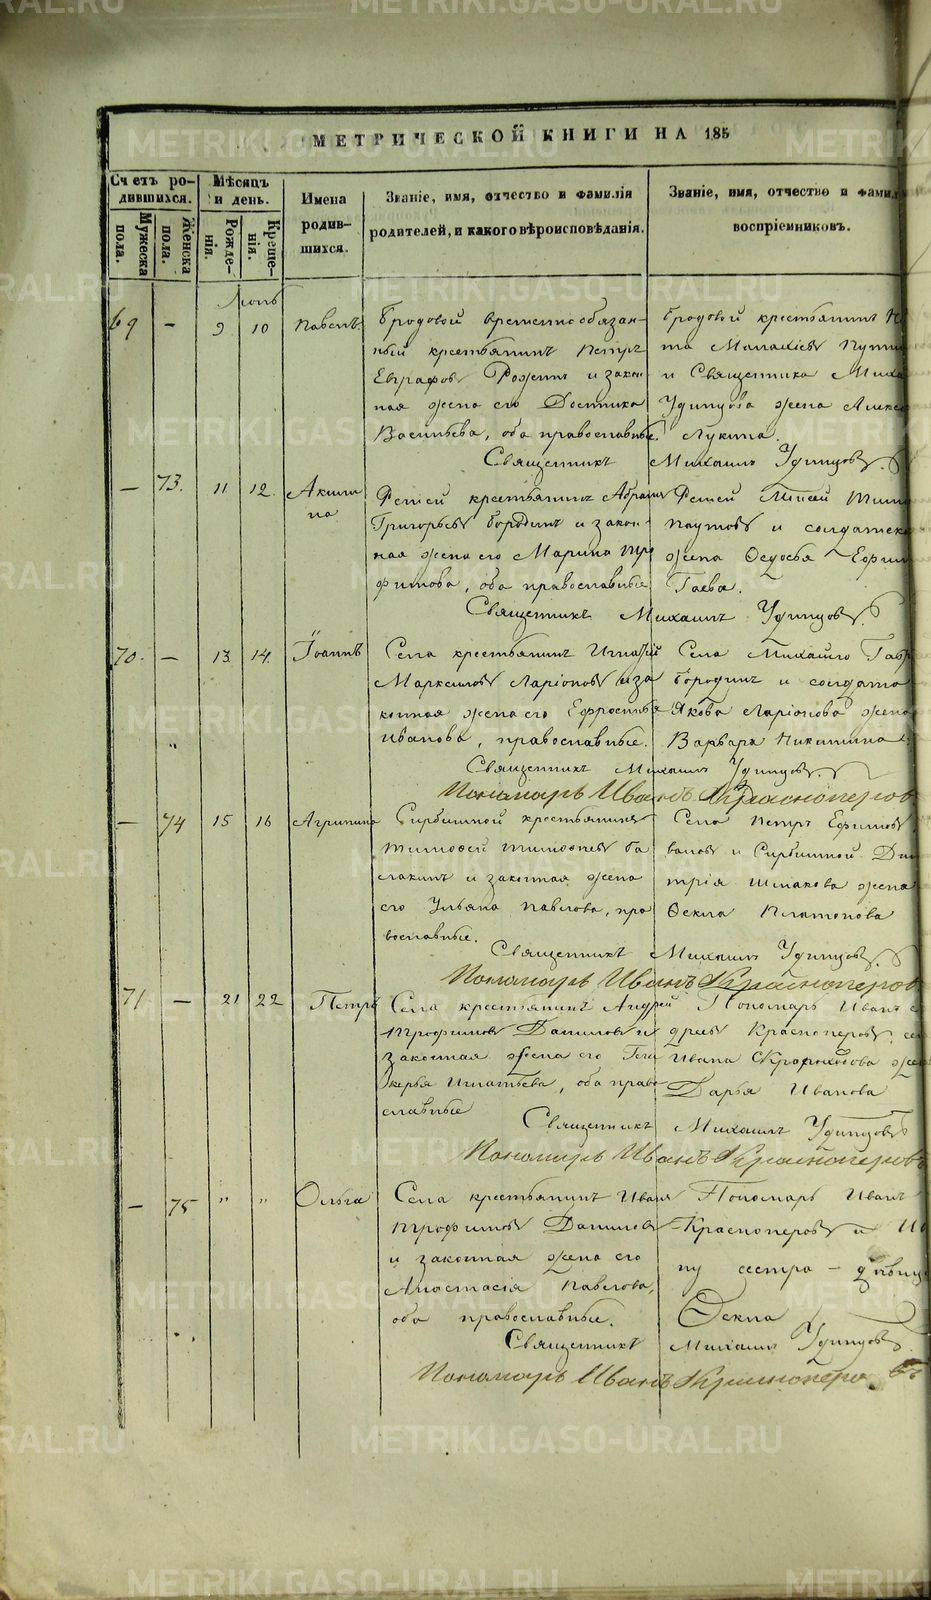 МЕТРИЧЕСКОЙ КНИГИ НА 185
Счетъ родившихся.
Мужеска пола.
Женска пола.
Мѣсяцъ и день.
Рожденія.
Крещенія.
Имена родившихся.
Званіе, имя, отчество и фамилія
родителей, и какого вѣроисповѣданія.
Званіе, имя, отчество и фамил
воспріемниковъ.
69 - 9 10 Павелъ.
Бродовой временнообязан-
ный крестьянинъ Петръ
Евграфовъ и закон-
ная жена его
Васильева, оба православные.
Бродовой крестьянинъ
и Священника Миха
Удинцова жена Алек
Лукина.
Священникъ Михаилъ Удинцовъ.
- 73. 11 12. Акили
на
крестьянинъ Абрамъ
Григорьевъ Бородинъ и закон-
ная жена его Марина Тро
фимова, оба православные
Паутовъ и солдатск
жена Ѳедосья Ефим
Гаева.
Священникъ Михаилъ Удинцовъ.
70. - 13. 14. Іоаннъ
Села крестьянинъ Игнатій
Маркеловъ Ларіоновъ и за
конная жена его Ефросинья
Иванова, православные.
Села Михайло Гавр
Бородинъ и солдата
Якова Ларіонова жена
Варвара Никитина
Священникъ Михаилъ Удинцовъ.
Пономарь Иванъ Красноперовъ
- 74 15 16 Агрипина
крестьянинъ
Тимофей Тимофеевъ Ба
лакинъ и законная жена
его Ульяна Павлова, пра
вославные.
Села Петръ Ефимовъ
вановъ и Дми
трія Шмакова жена
Ѳекла Платонова
Священникъ Михаилъ Удинцовъ.
Пономарь Иванъ Красноперовъ
71 - 21 22 Петръ
Села крестьянинъ Андрей
Трофимовъ Даниловъ и
законная жена его Гли
керья Игнатьева, оба право
славные
Пономарь Иванъ
дреевъ Красноперовъ, се
Ивана жена
Дарья Иванова
Священникъ Михаилъ Удинцовъ
Пономарь Иванъ Красноперовъ
- 75 " " Ольга
Села крестьянинъ Иванъ
Трофимовъ Даниловъ
и законная жена его
Анастасія Павлова,
оба православные.
Пономарь Иванъ
Красноперовъ и
ну сестра - дѣвица
Ѳекла
Священникъ Михаилъ Удинцовъ.
Пономарь Иванъ Красноперовъ
METRIKI.GASO-URAL.RU